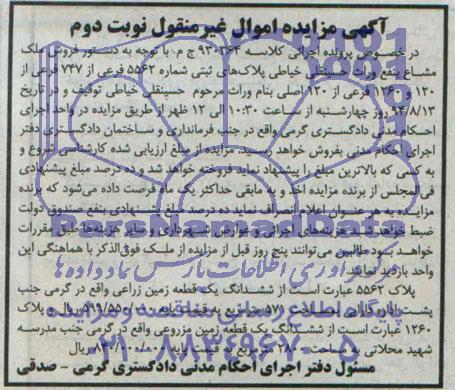 آگهی مزایده اموال غیرمنقول نوبت دوم
در خصوص پرونده اجرایی کلاسه ۹۳۰۳۶۲ ج م با توجه به دستور فروش ملک
مشاع بنفع وراث حسینقلی خیاطی پلاک‌های ثبتی شماره ۵۵۶۲ فرعی از ۷۴۷ فرعی از
۱۲۰ و ۱۲۶۰ فرعی از ۱۲۰ اصلی بنام وراث مرحوم حسینقلی خیاطی توقیف و در تاریخ
۹۴/۸/۱۳ روز چهارشنبه از ساعت ۱۰:۳۰ الی ۱۲ ظهر از طریق مزایده در واحد اجرای
احکام مدنی دادگستری گرمی واقع در جنب فرمانداری و ساختمان دادگستری دفتر
اجرای احکام مدنی بفروش خواهد رسید. مزایده از مبلغ ارزیابی شده کارشناسی شروع و
به کسی که بالاترین مبلغ را پیشنهاد نماید فروخته خواهد شد و ده درصد مبلغ پیشنهادی
فی‌المجلس از برنده مزایده اخذ و به مابقی حداکثر یک ماه فرصت داده می‌شود که برنده
مزایده به هر عنوان اعلام انصراف نماید ده درصد مبلغ پیشنهادی بنفع صندوق دولت
ضبط خواهد شد. هزینه‌های اجرایی و عوارض شهرداری و سایر هزینه‌ها طبق مقررات
خواهد بود. طالبین می‌توانند پنج روز قبل از مزایده از ملک فوق‌الذکر با هماهنگی این
واحد بازدید نمایند.
پلاک ۵۵۶۲ عبارت است از ششدانگ یک قطعه زمین زراعی واقع در گرمی جنب
پشت اداره به مساحت مترمربع به قیمت پایه ریال و پلاک
۱۲۶۰ عبارت است از ششدانگ یک قطعه زمین مزروعی واقع در گرمی جنب مدرسه
شهید محلاتی به مساحت مترمربع به قیمت پایه ریال
مسئول دفتر اجرای احکام مدنی دادگستری گرمی - صدقی
پایگاه اطلاع رسانی مناقصه و مزایده
۰۲۱-۸۸۳۴۹۶۷۰-۵